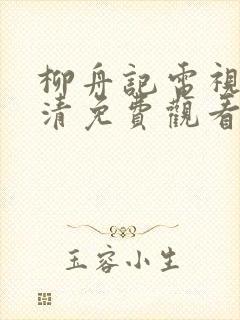 柳舟記電視
清免費觀看
玉容小生